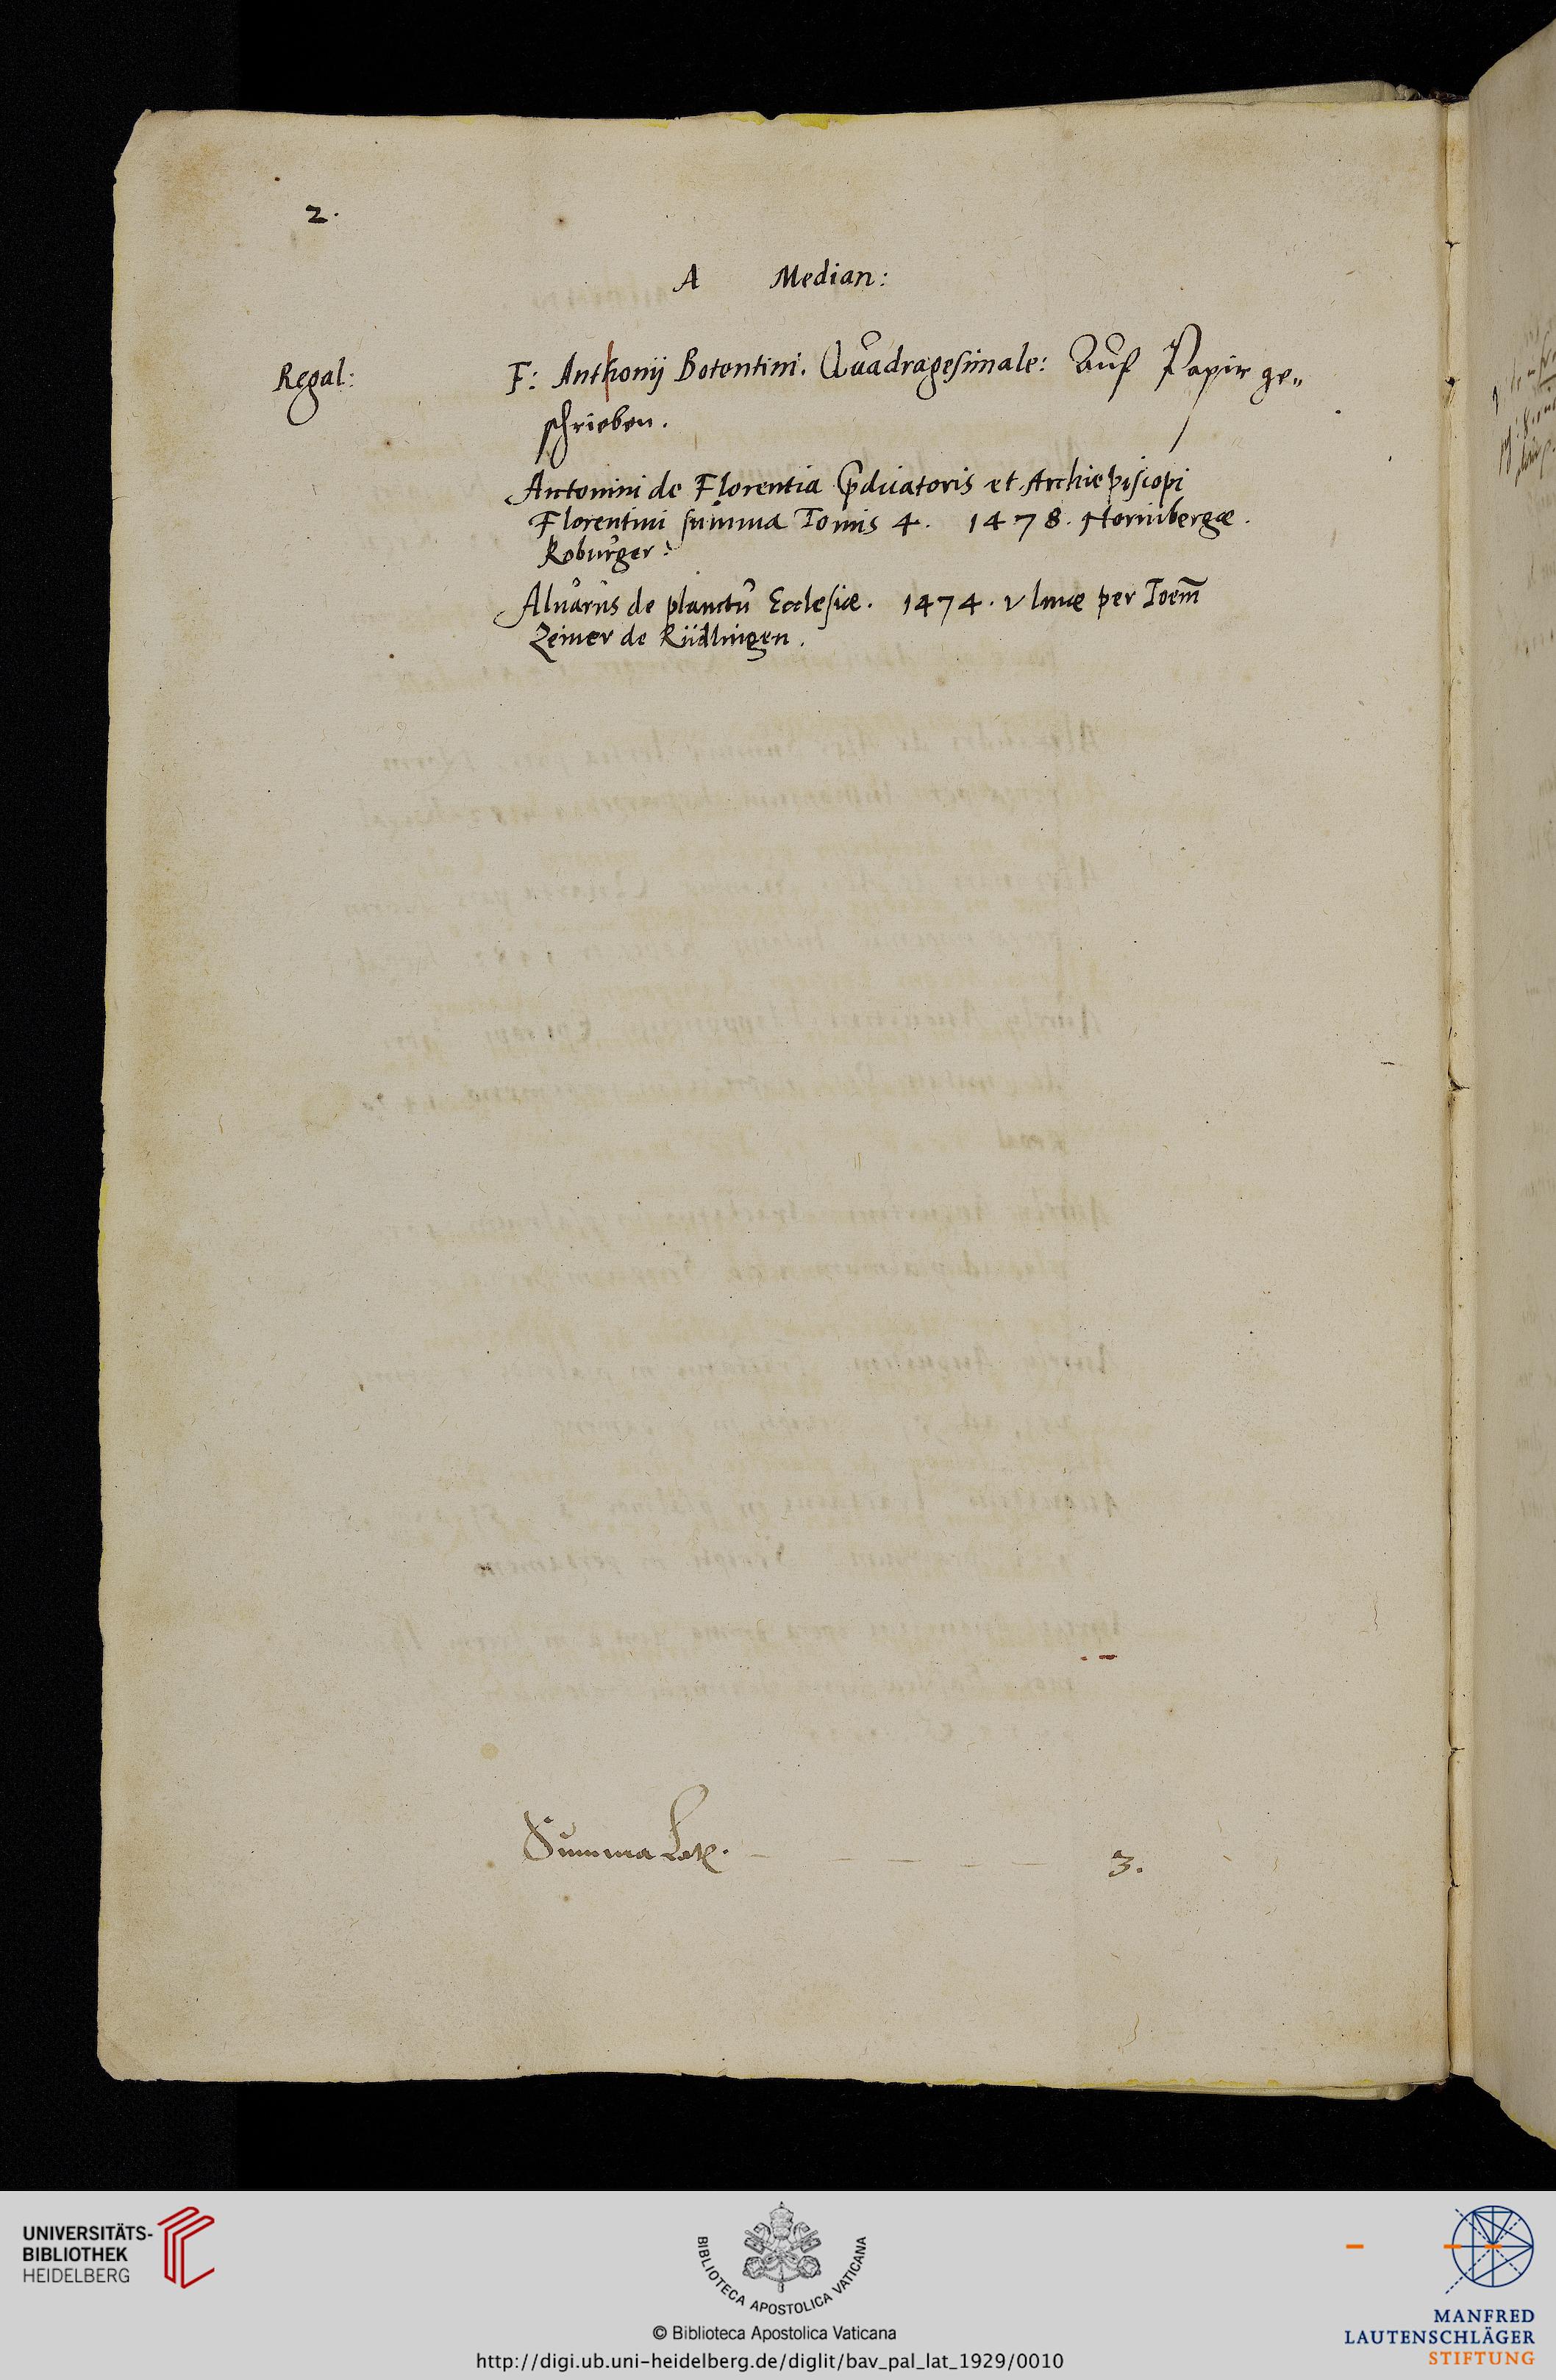 2.
A Median:
Regal:
F: Anthonij Botontini. Quadragesimale: Auf Papir ge„
schrieben.
Antonini de Florentia Pdicatoris et Archiepiscopi
Florentini summa Tomis 4. 1478. Norinbergæ.
Koburger.
Aluarus de planctu Ecclesiæ. 1474. Vlmæ per Joem̄
Zeiner de Rüdlingen.
Summa 3.
UNIVERSITÄTS-
BIBLIOTHEK
HEIDELBERG
BIBLIOTECA APOSTOLICA VATICANA
© Biblioteca Apostolica Vaticana
http://digi.ub.uni-heidelberg.de/diglit/bav_pal_lat_1929/0010
MANFRED
LAUTENSCHLÄGER
STIFTUNG